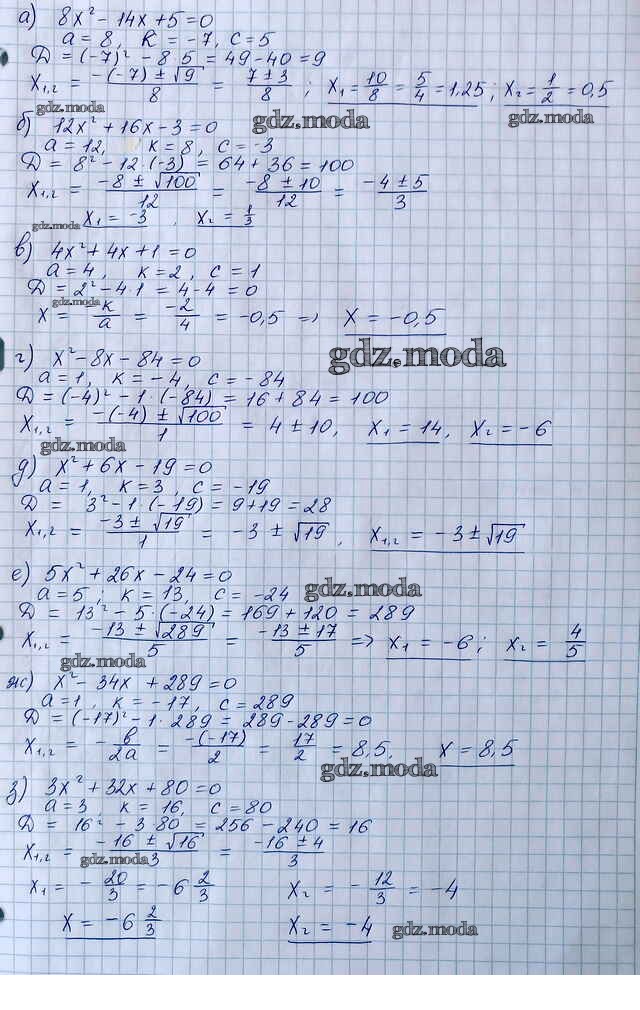 а) 8x² - 14x + 5 = 0
a = 8, k = -7, c = 5
D = (-7)² - 8·5 = 49 - 40 = 9
x₁,₂ = (-(-7) ± √9)/8 = (7 ± 3)/8 ; x₁ = 10/8 = 5/4 = 1,25 ; x₂ = 1/2 = 0,5
gdz.moda gdz.moda gdz.moda
б) 12x² + 16x - 3 = 0
a = 12, k = 8, c = -3
D = 8² - 12·(-3) = 64 + 36 = 100
x₁,₂ = (-8 ± √100)/12 = (-8 ± 10)/12 = (-4 ± 5)/3
gdz.moda x₁ = -3, x₂ = 1/3
в) 4x² + 4x + 1 = 0
a = 4, k = 2, c = 1
D = 2² - 4·1 = 4 - 4 = 0
gdz.moda
x = -k/a = -2/4 = -0,5 => x = -0,5
gdz.moda
г) x² - 8x - 84 = 0
a = 1, k = -4, c = -84
D = (-4)² - 1·(-84) = 16 + 84 = 100
x₁,₂ = (-(-4) ± √100)/1 = 4 ± 10, x₁ = 14, x₂ = -6
gdz.moda
д) x² + 6x - 19 = 0
a = 1, k = 3, c = -19
D = 3² - 1·(-19) = 9 + 19 = 28
x₁,₂ = (-3 ± √19)/1 = -3 ± √19, x₁,₂ = -3 ± √19
е) 5x² + 26x - 24 = 0
gdz.moda
a = 5 ; k = 13, c = -24
D = 13² - 5·(-24) = 169 + 120 = 289
x₁,₂ = (-13 ± √289)/5 = (-13 ± 17)/5 => x₁ = -6 ; x₂ = 4/5
gdz.moda
ж) x² - 34x + 289 = 0
a = 1, k = -17, c = 289
D = (-17)² - 1·289 = 289 - 289 = 0
x₁,₂ = -b/2a = -(-17)/2 = 17/2 = 8,5, x = 8,5
gdz.moda
з) 3x² + 32x + 80 = 0
a = 3, k = 16, c = 80
D = 16² - 3·80 = 256 - 240 = 16
x₁,₂ = (-16 ± √16)/3 = (-16 ± 4)/3
gdz.moda
x₁ = -20/3 = -6 2/3 x₂ = -12/3 = -4
x = -6 2/3 x₂ = -4 gdz.moda